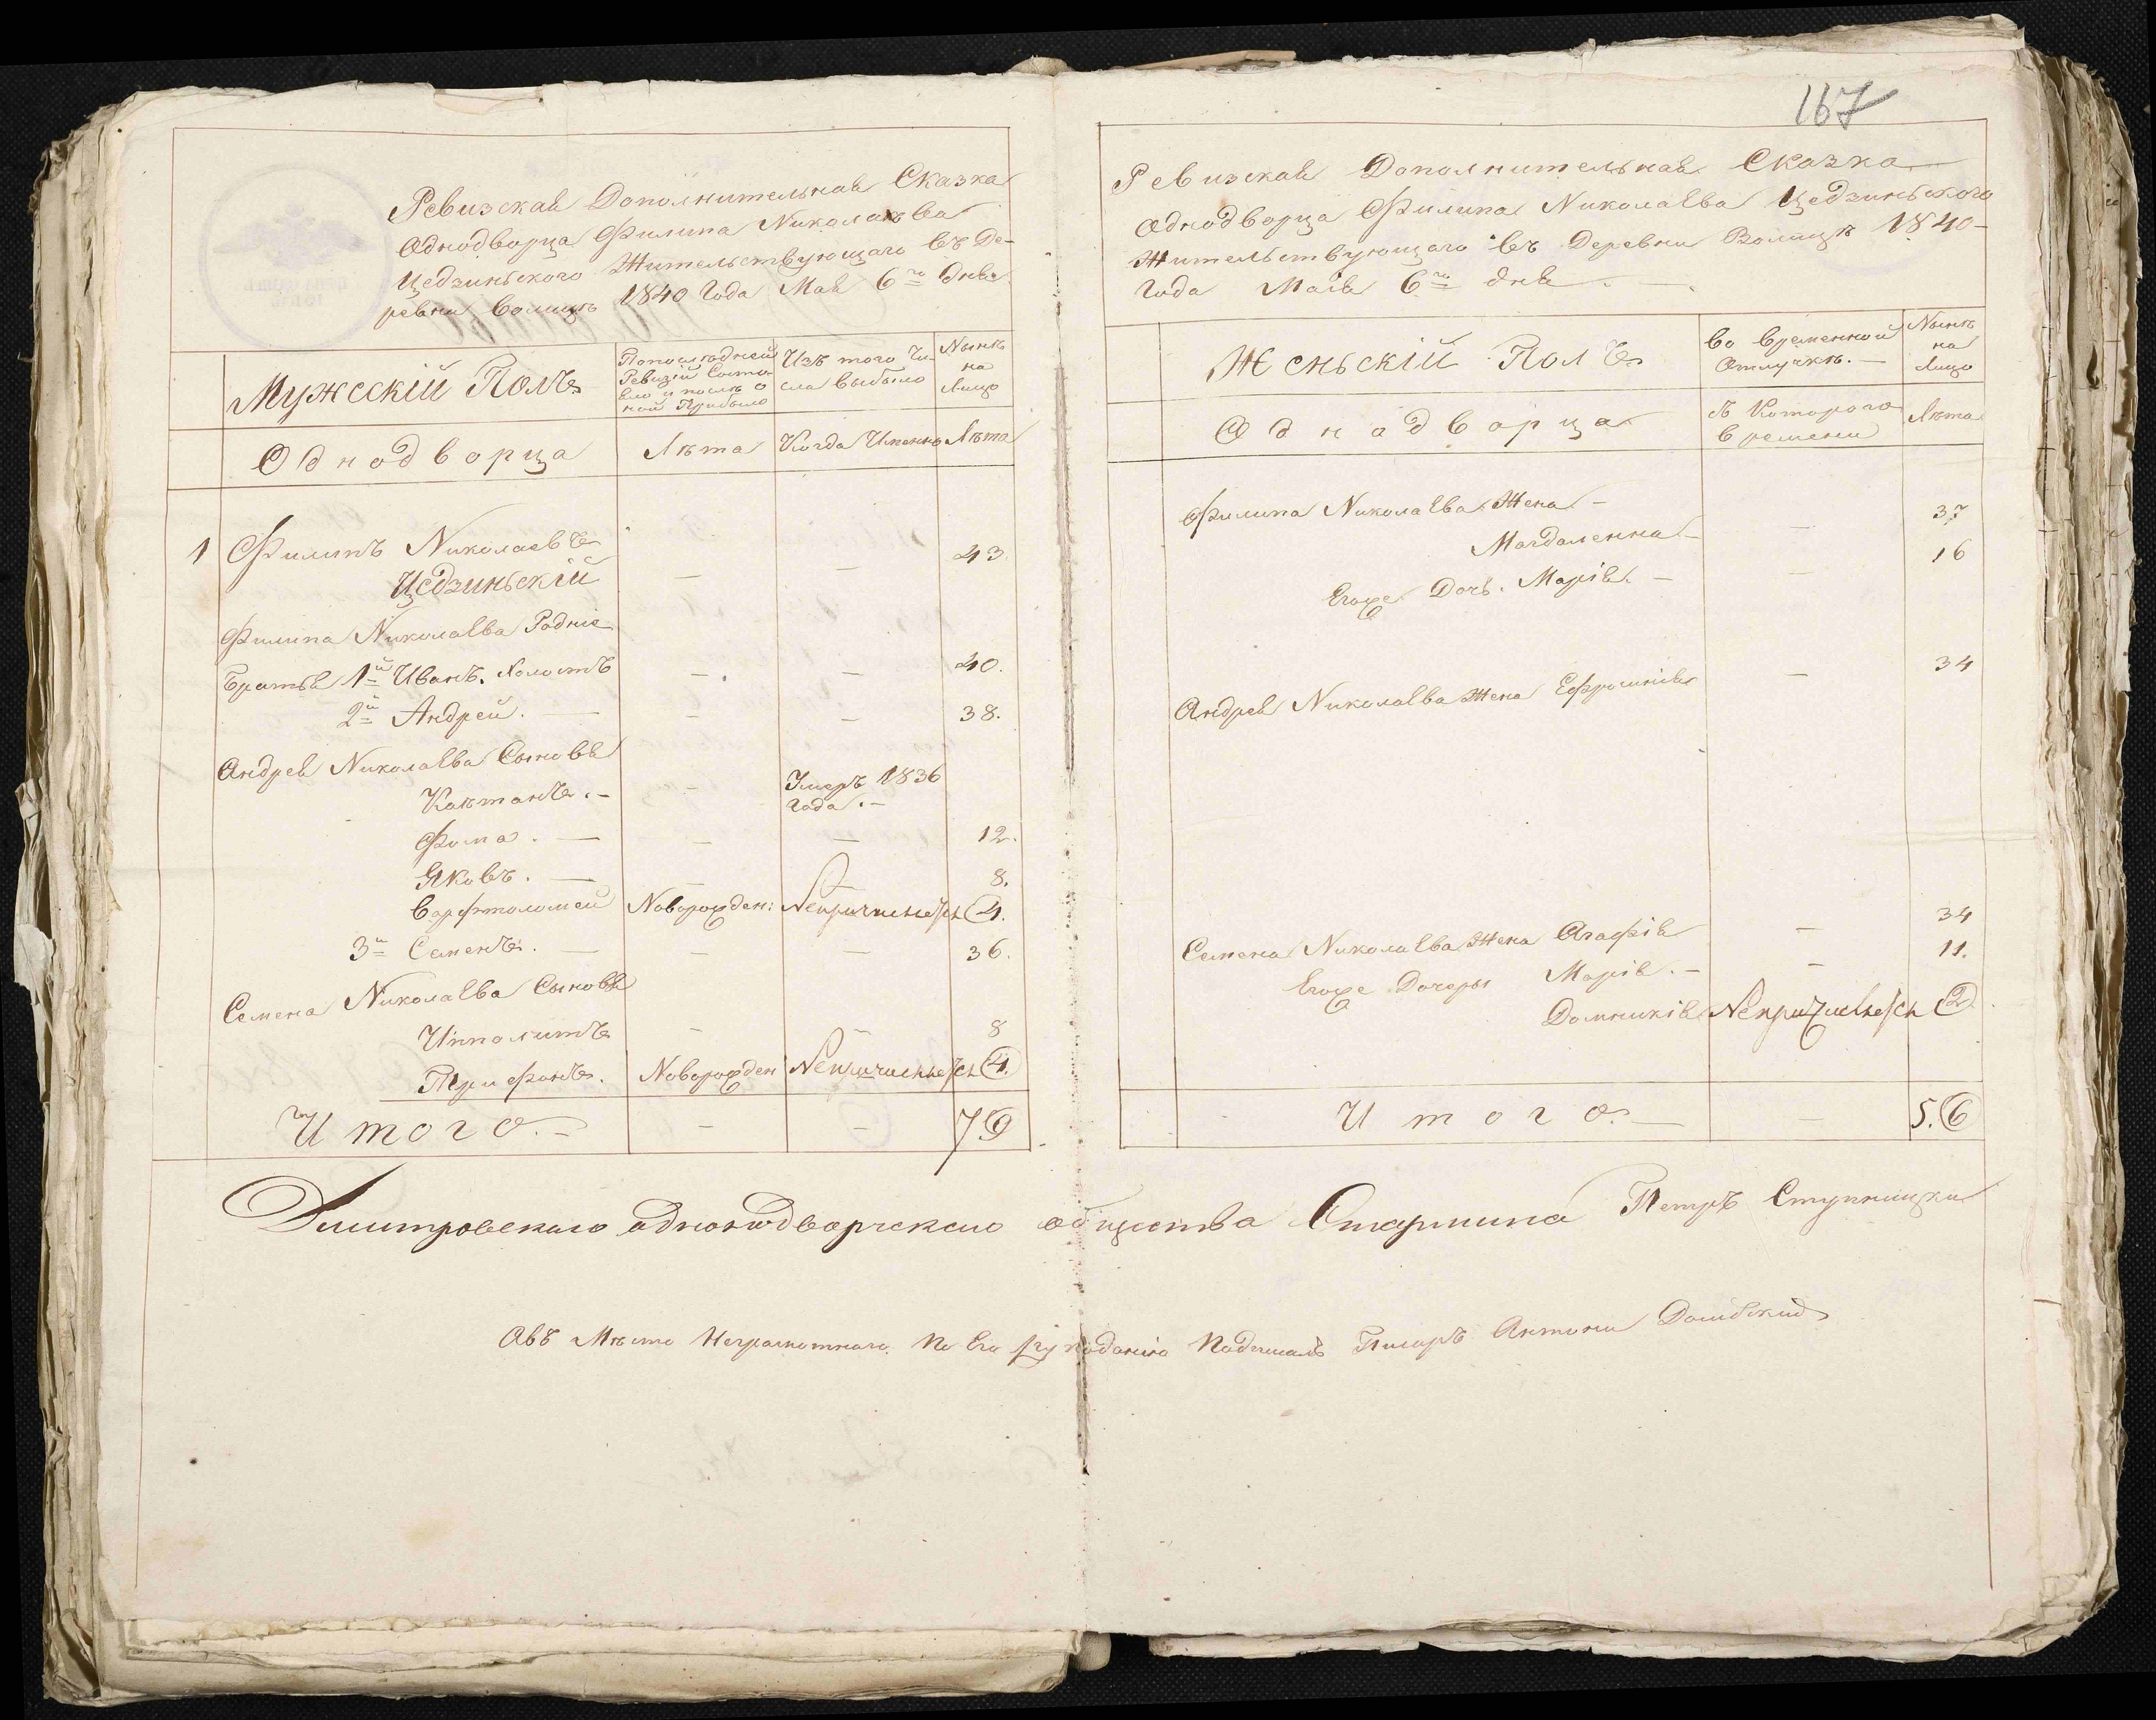 167
Ревизская Дополнительная Сказка
Однодворца Филипа Николаева
Цедзиньского Жительствующаго въ Де-
ревни Волицѣ 1840 Года Мая 6го дня
Мужескій Полъ
Попослѣдней
Ревизіи Состо-
яло и послѣ о
ной Прибыло
Изъ того Чи-
сла выбыло
Нынѣ
на
Лицо
Однодворца
Лѣта
Когда Именно
Лѣта
1 Филипъ Николаевъ
Цедзиньскій — — 43
Филипа Николаева Родніе
Братья 1й Иванъ. Холостъ — — 40.
2й Андрей. — — — 38.
Андрея Николаева Сыновя
Каетанъ. — — Умеръ 1836
Года. —
Фома. — — — 12.
Яковъ. — — — 8.
Варфтоломей Новорожден: Непричисляется 4.
3й Семенъ. — — — 36.
Семена Николаева Сыновя
Ипполитъ — — 8
Трифонъ. Новорожден Непричисляется 4.
Итого. — — — 7 9
Ревизская Дополнительная Сказка
Однодворца Филипа Николаева Цедзиньского
Жительствующаго въ Деревни Волицѣ 1840-
Года Маія 6го дня
Женьскій Полъ
Во временной
Отлучкѣ. —
Нынѣ
на
Лицо
Однодворца
Съ Которого
времени
Лѣта
Филипа Николаева Жена —
Магдаленна — — 37
Егоже Дочь. Марія. — — 16
Андрея Николаева Жена Ефросинія — 34
Семена Николаева Жена Агафія — 34
Егоже Дочеры Марія. — — 11.
Домникія Непричисляется 2
Итого. — — 5. 6
Димитровского однодворческаго общества Старшина Петръ Ступницки
Авъ Мѣсто Неграмотнаго По Его рукоданію Подписалъ Писарь Антони